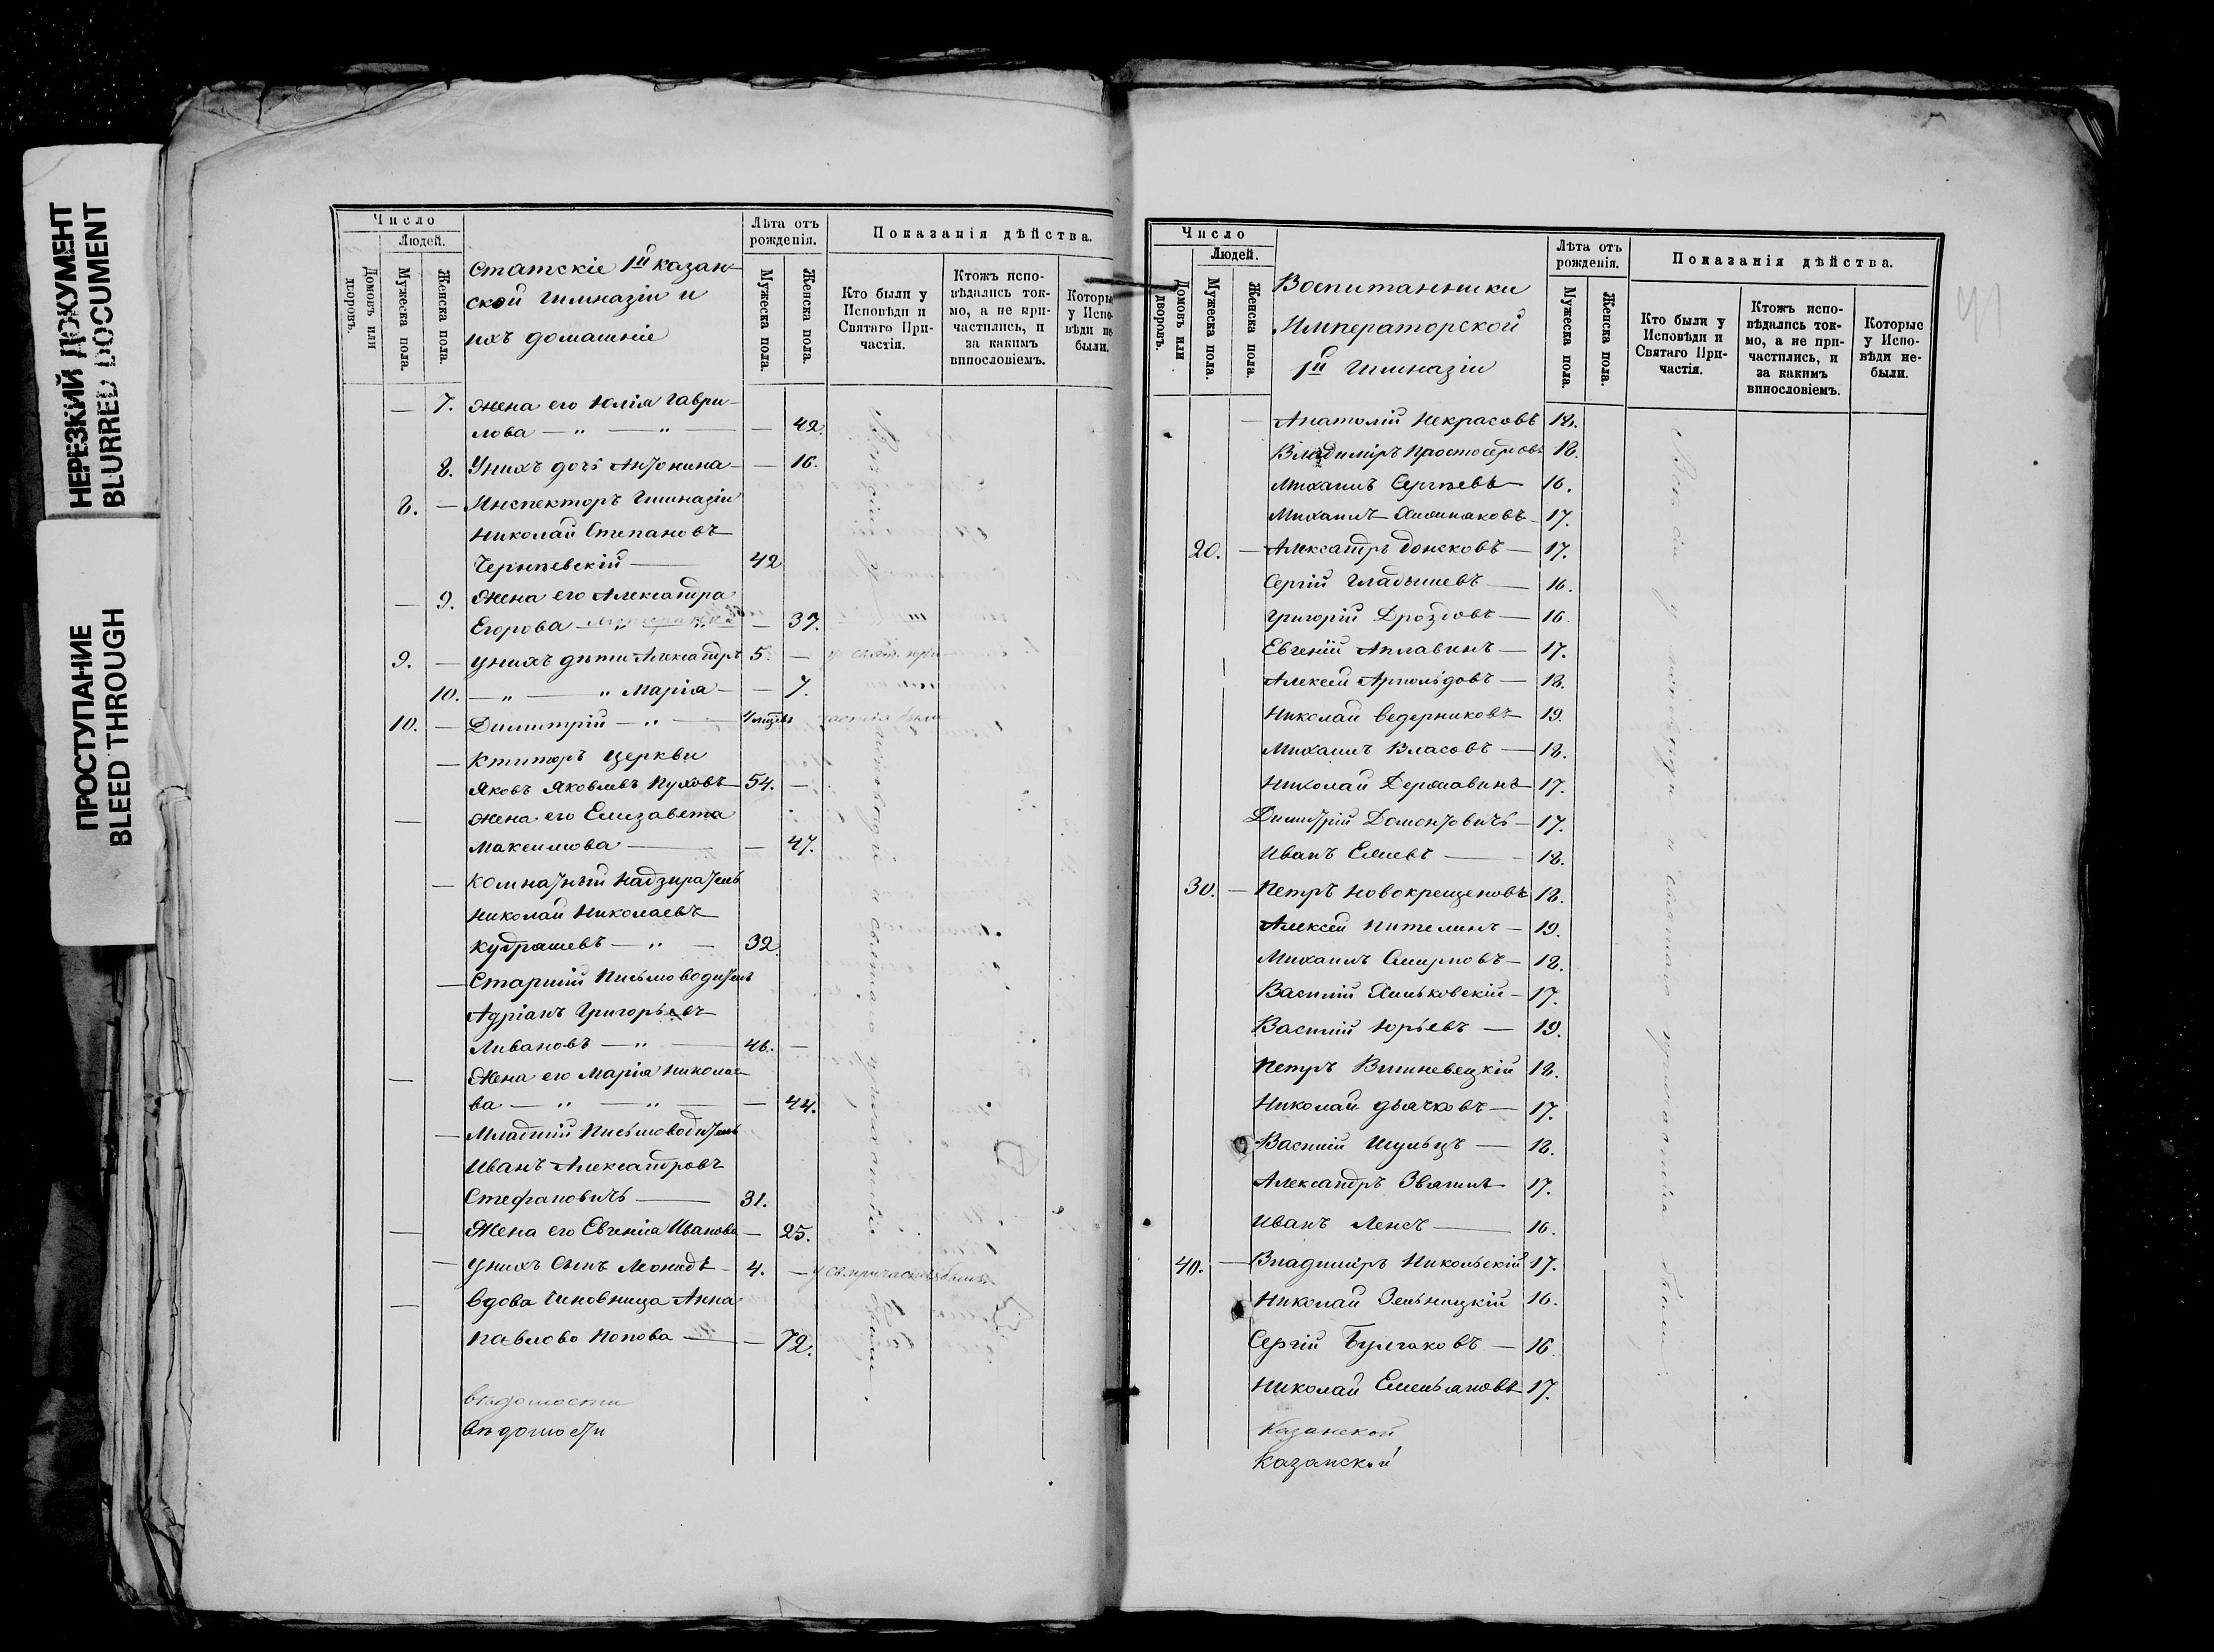 НЕРЕЗКИЙ ДОКУМЕНТ
BLURRED DOCUMENT
ПРОСТУПАНИЕ
BLEED THROUGH
Число
Людей.
Домовъ или дворовъ.
Мужеска пола.
Женска пола.
Статскіе 1й казан-
ской гимназіи и
ихъ домашніе
Лѣта отъ рожденія.
Мужеска пола.
Женска пола.
Показанія дѣйства.
Кто были у Исповѣди и Святаго Причастія.
Ктожъ исповѣдались токмо, а не причастились, и за какимъ винословіемъ.
Которы у Испо- вѣди не были.
— 7. Жена его Юлія Гаври-
лова — „ — „ — — 42.
8. У нихъ дочь Антонина — — 16.
8. — Инспекторъ Гимназіи
Николай Степановъ
Чернѣевскій — 42
— 9. Жена его Александра
Егорова — 37.
9. — у нихъ дѣти Александръ 5. —
10. — „ — „ Марія — — 7.
10. — Димитрій — „ —
— Ктиторъ церкви
Яковъ Яковлевъ Пуховъ 54. —
— Жена его Елизавета
Максимова — — 47.
— Комнатный Надзиратель
Николай Николаевъ
Кудряшевъ — „ — 32
— Старшій Письмоводитель
Адріанъ Григорьевъ
Ливановъ — „ — 46. —
— Жена его Марія Николае-
ва — „ — „ — — 44.
— Младшій Письмоводитель
Иванъ Александровъ
Стефановичъ — 31.
— Жена его Евгенія Иванова — 25.
— у нихъ Сынъ Леонидъ — 4. —
— Вдова Чиновница Анна
Павлово Попова — — 72.
вѣдомости
вѣдомости
Число
Людей.
Домовъ или дворовъ.
Мужеска пола.
Женска пола.
Воспитанники
Императорской
1й Гимназіи
Лѣта отъ рожденія.
Мужеска пола.
Женска пола.
Показанія дѣйства.
Кто были у Исповѣди и Святаго Причастія.
Ктожъ исповѣдались токмо, а не причастились, и за какимъ винословіемъ.
Которые у Исповѣди небыли.
— Анатолій Некрасовъ 18.
Владиміръ Простосердовъ 18.
Михаилъ Сергѣевъ — 16.
Михаилъ 17.
20. — Александръ Донсковъ — 17.
Сергій Гладышевъ — 16.
Григорій Дроздовъ — 16.
Евгеній Аплавинъ — 17.
Алексѣй Арнольдовъ — 18.
Николай Ведерниковъ 19.
Михаилъ Власовъ — 18.
Николай Державинъ 17.
Димитрій Домонтовичъ — 17.
Иванъ Елиевъ — 18.
30. — Петръ Новокрещеновъ 18.
Алексѣй Пителинъ — 19.
Михаилъ Смирновъ — 18.
Василій Хмьковскій — 17.
Василій Юрьевъ — 19.
Петръ Вишневецкій 18.
Николай Дьячковъ — 17.
Василій Шульцъ — 18.
Александръ Звягинъ 17.
Иванъ Ленсъ — 16.
40. — Владиміръ Никольскій 17.
Николай Зельницкій 16.
Сергій Булгаковъ — 16.
Николай Емельяновъ 17.
Казанской
Казанской